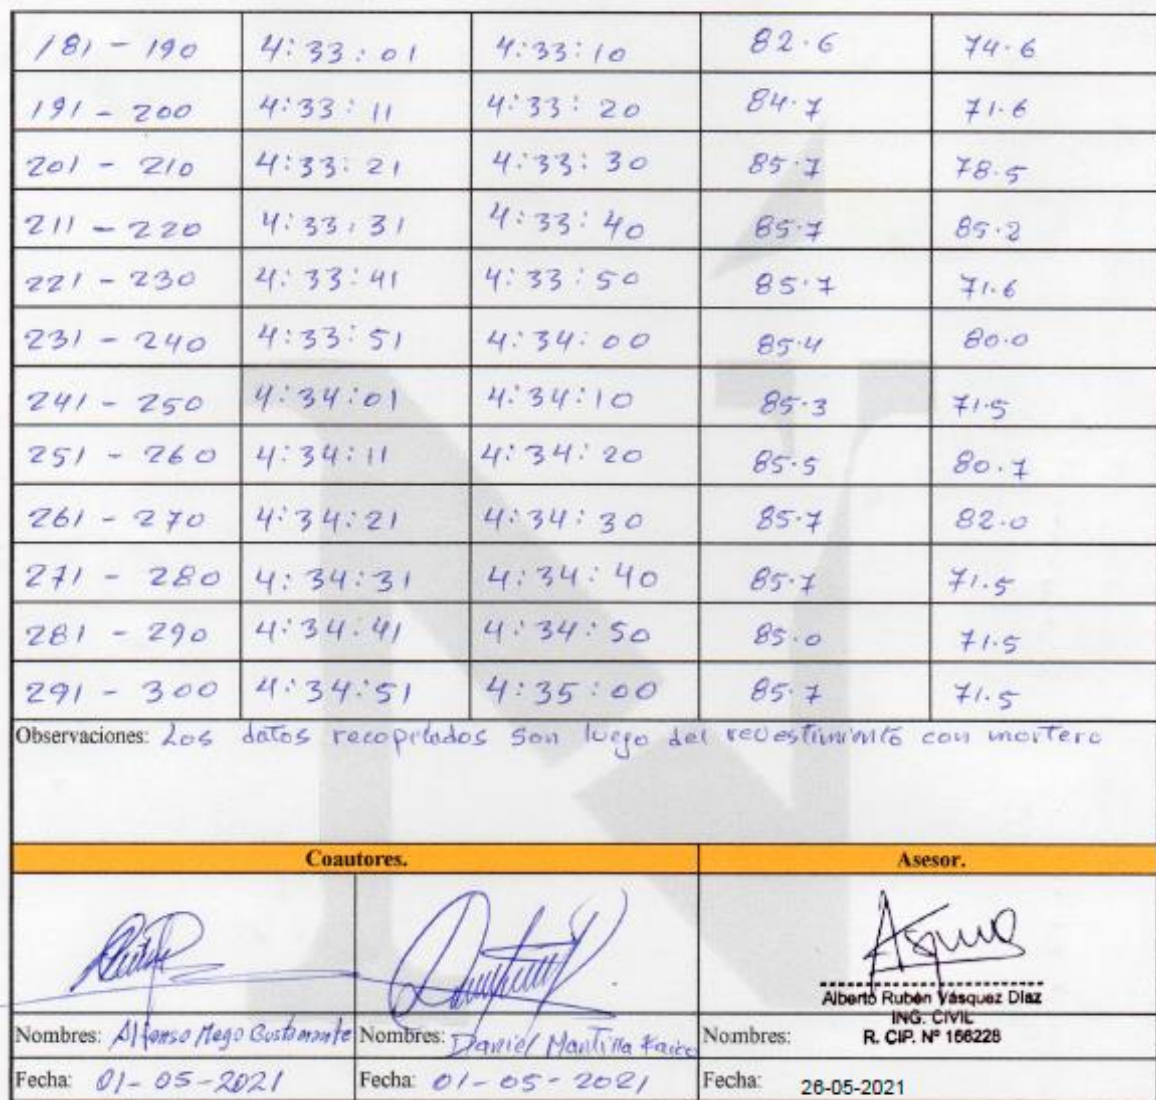 181 - 190 4:33:01 4:33:10 82.6 74.6
191 - 200 4:33:11 4:33:20 84.7 71.6
201 - 210 4:33:21 4:33:30 85.7 78.5
211 - 220 4:33:31 4:33:40 85.7 85.2
221 - 230 4:33:41 4:33:50 85.7 71.6
231 - 240 4:33:51 4:34:00 85.4 80.0
241 - 250 4:34:01 4:34:10 85.3 71.5
251 - 260 4:34:11 4:34:20 85.5 80.7
261 - 270 4:34:21 4:34:30 85.7 82.0
271 - 280 4:34:31 4:34:40 85.7 71.5
281 - 290 4:34:41 4:34:50 85.0 71.5
291 - 300 4:34:51 4:35:00 85.7 71.5
Observaciones: Los datos recopilados son luego del revestimiento con mortero
Coautores. Asesor.
Alberto Rubén Vásquez Díaz
ING. CIVIL
R. CIP. Nº 166228
Nombres: Alfonso Mego Bustamante Nombres: Daniel Mantilla Nombres:
Fecha: 01-05-2021 Fecha: 01-05-2021 Fecha: 26-05-2021